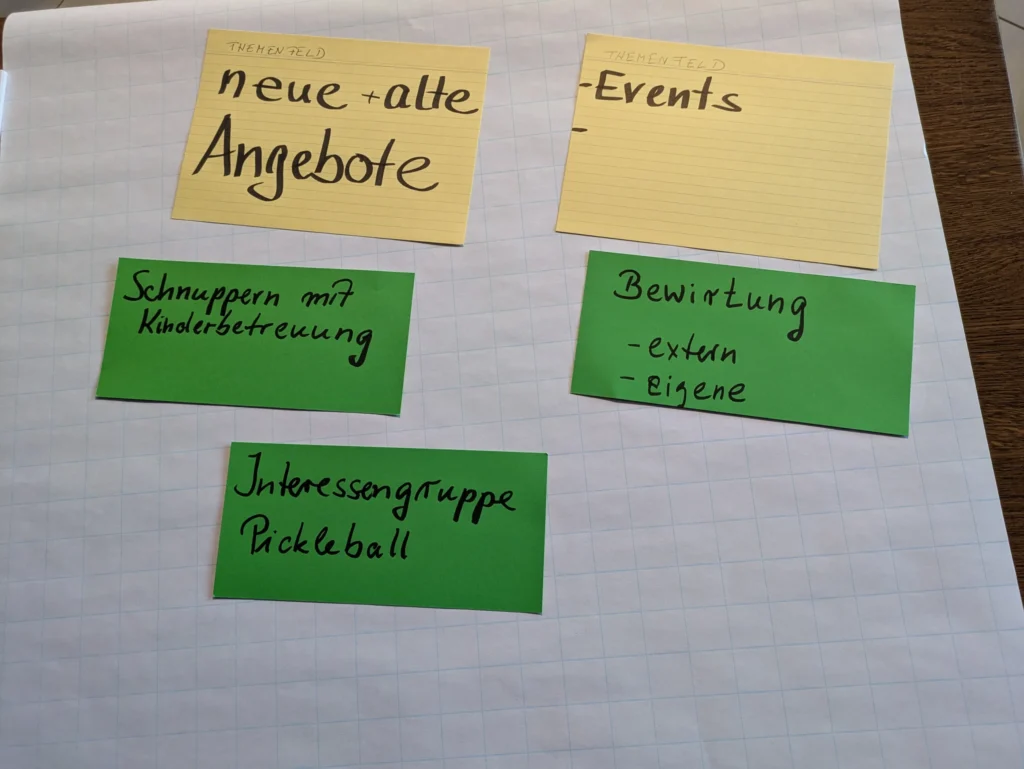 THEMENFELD
neue + alte
Angebote
THEMENFELD
- Events
-
Schnuppern mit
Kinderbetreuung
Bewirtung
- extern
- eigene
Interessengruppe
Pickleball